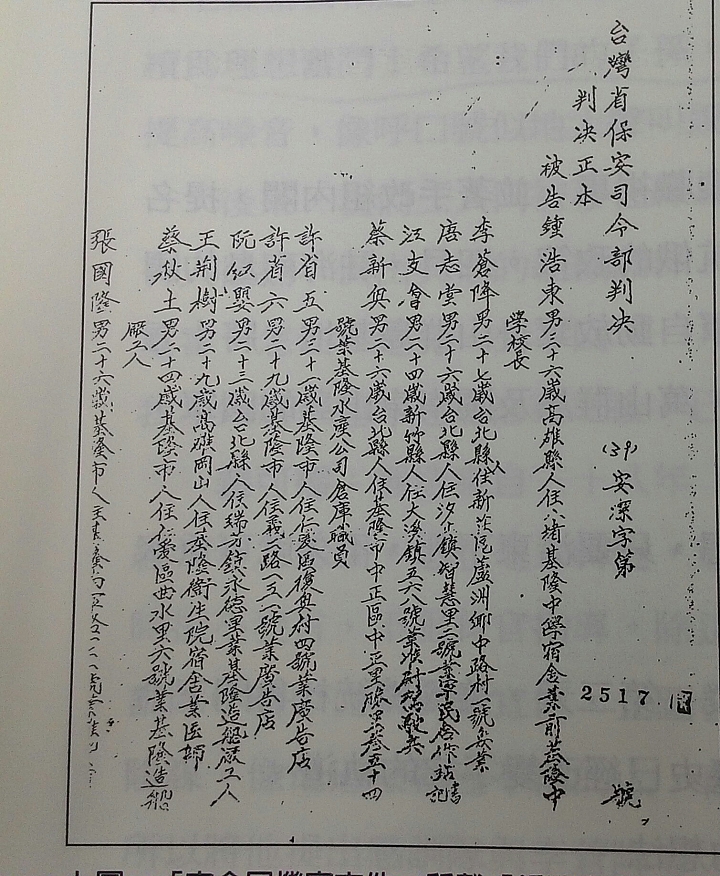 台灣省保安司令部判決 (39)安潔字第 2517 號
判决正本
被告鍾浩東男三十六歲高雄縣人住八堵基隆中學宿舍業前基隆中
學校長
李蒼降男二十七歲台北縣人住新莊區蘆洲鄉中路村一號無業
唐志堂男二十六歲台北縣人住汐止鎮智慧里二號業軍民合作站書記
汪支會男二十四歲新竹縣人住大溪鎮五六八號業准尉駕駛兵
蔡新興男二十六歲台北縣人住基隆市中正區中正里勝巷五十四
號業基隆水產公司倉庫職員
許省五男三十一歲基隆市人住仁愛區復興村四號業廣告店
許省六男二十九歲基隆市人住義二路一三一號業廣告店
阮紅嬰男二十三歲台北縣人住瑞芳鎮永德里業基隆造船廠工人
王荆樹男二十九歲高雄岡山人住基隆衛生院宿舍業医師
蔡伙土男二十四歲基隆市人住仁愛區曲水里六號業基隆造船
厰工人
張國隆男二十六歲基隆市人住